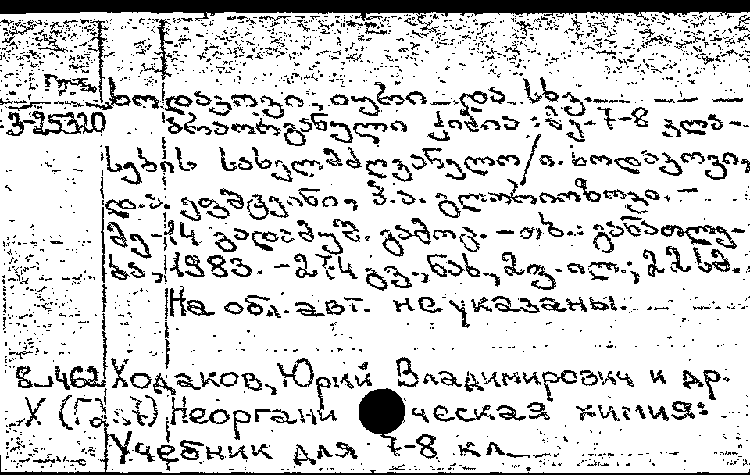 Груз.
ხოდაკოვი, იური და სხვ.
3-25320 არაორგანული ქიმია: მე-7-8 კლა-
სების სახელმძღვანელო ი. ხოდაკოვი,
დ.ა. ეფშტეინი, პ.ა. გლორიოზოვი. -
მე-14 გადამუშ. გამოც. - თბ.: განათლე-
ბა, 1983. - 274 გვ., ნახ., 2 ფ. ილ.; 22 სმ.
На обл. авт. не указаны.
8-462 Ходаков, Юрий Владимирович и др.
X Неоргани ческая химия:
Учебник для 7-8 кл.